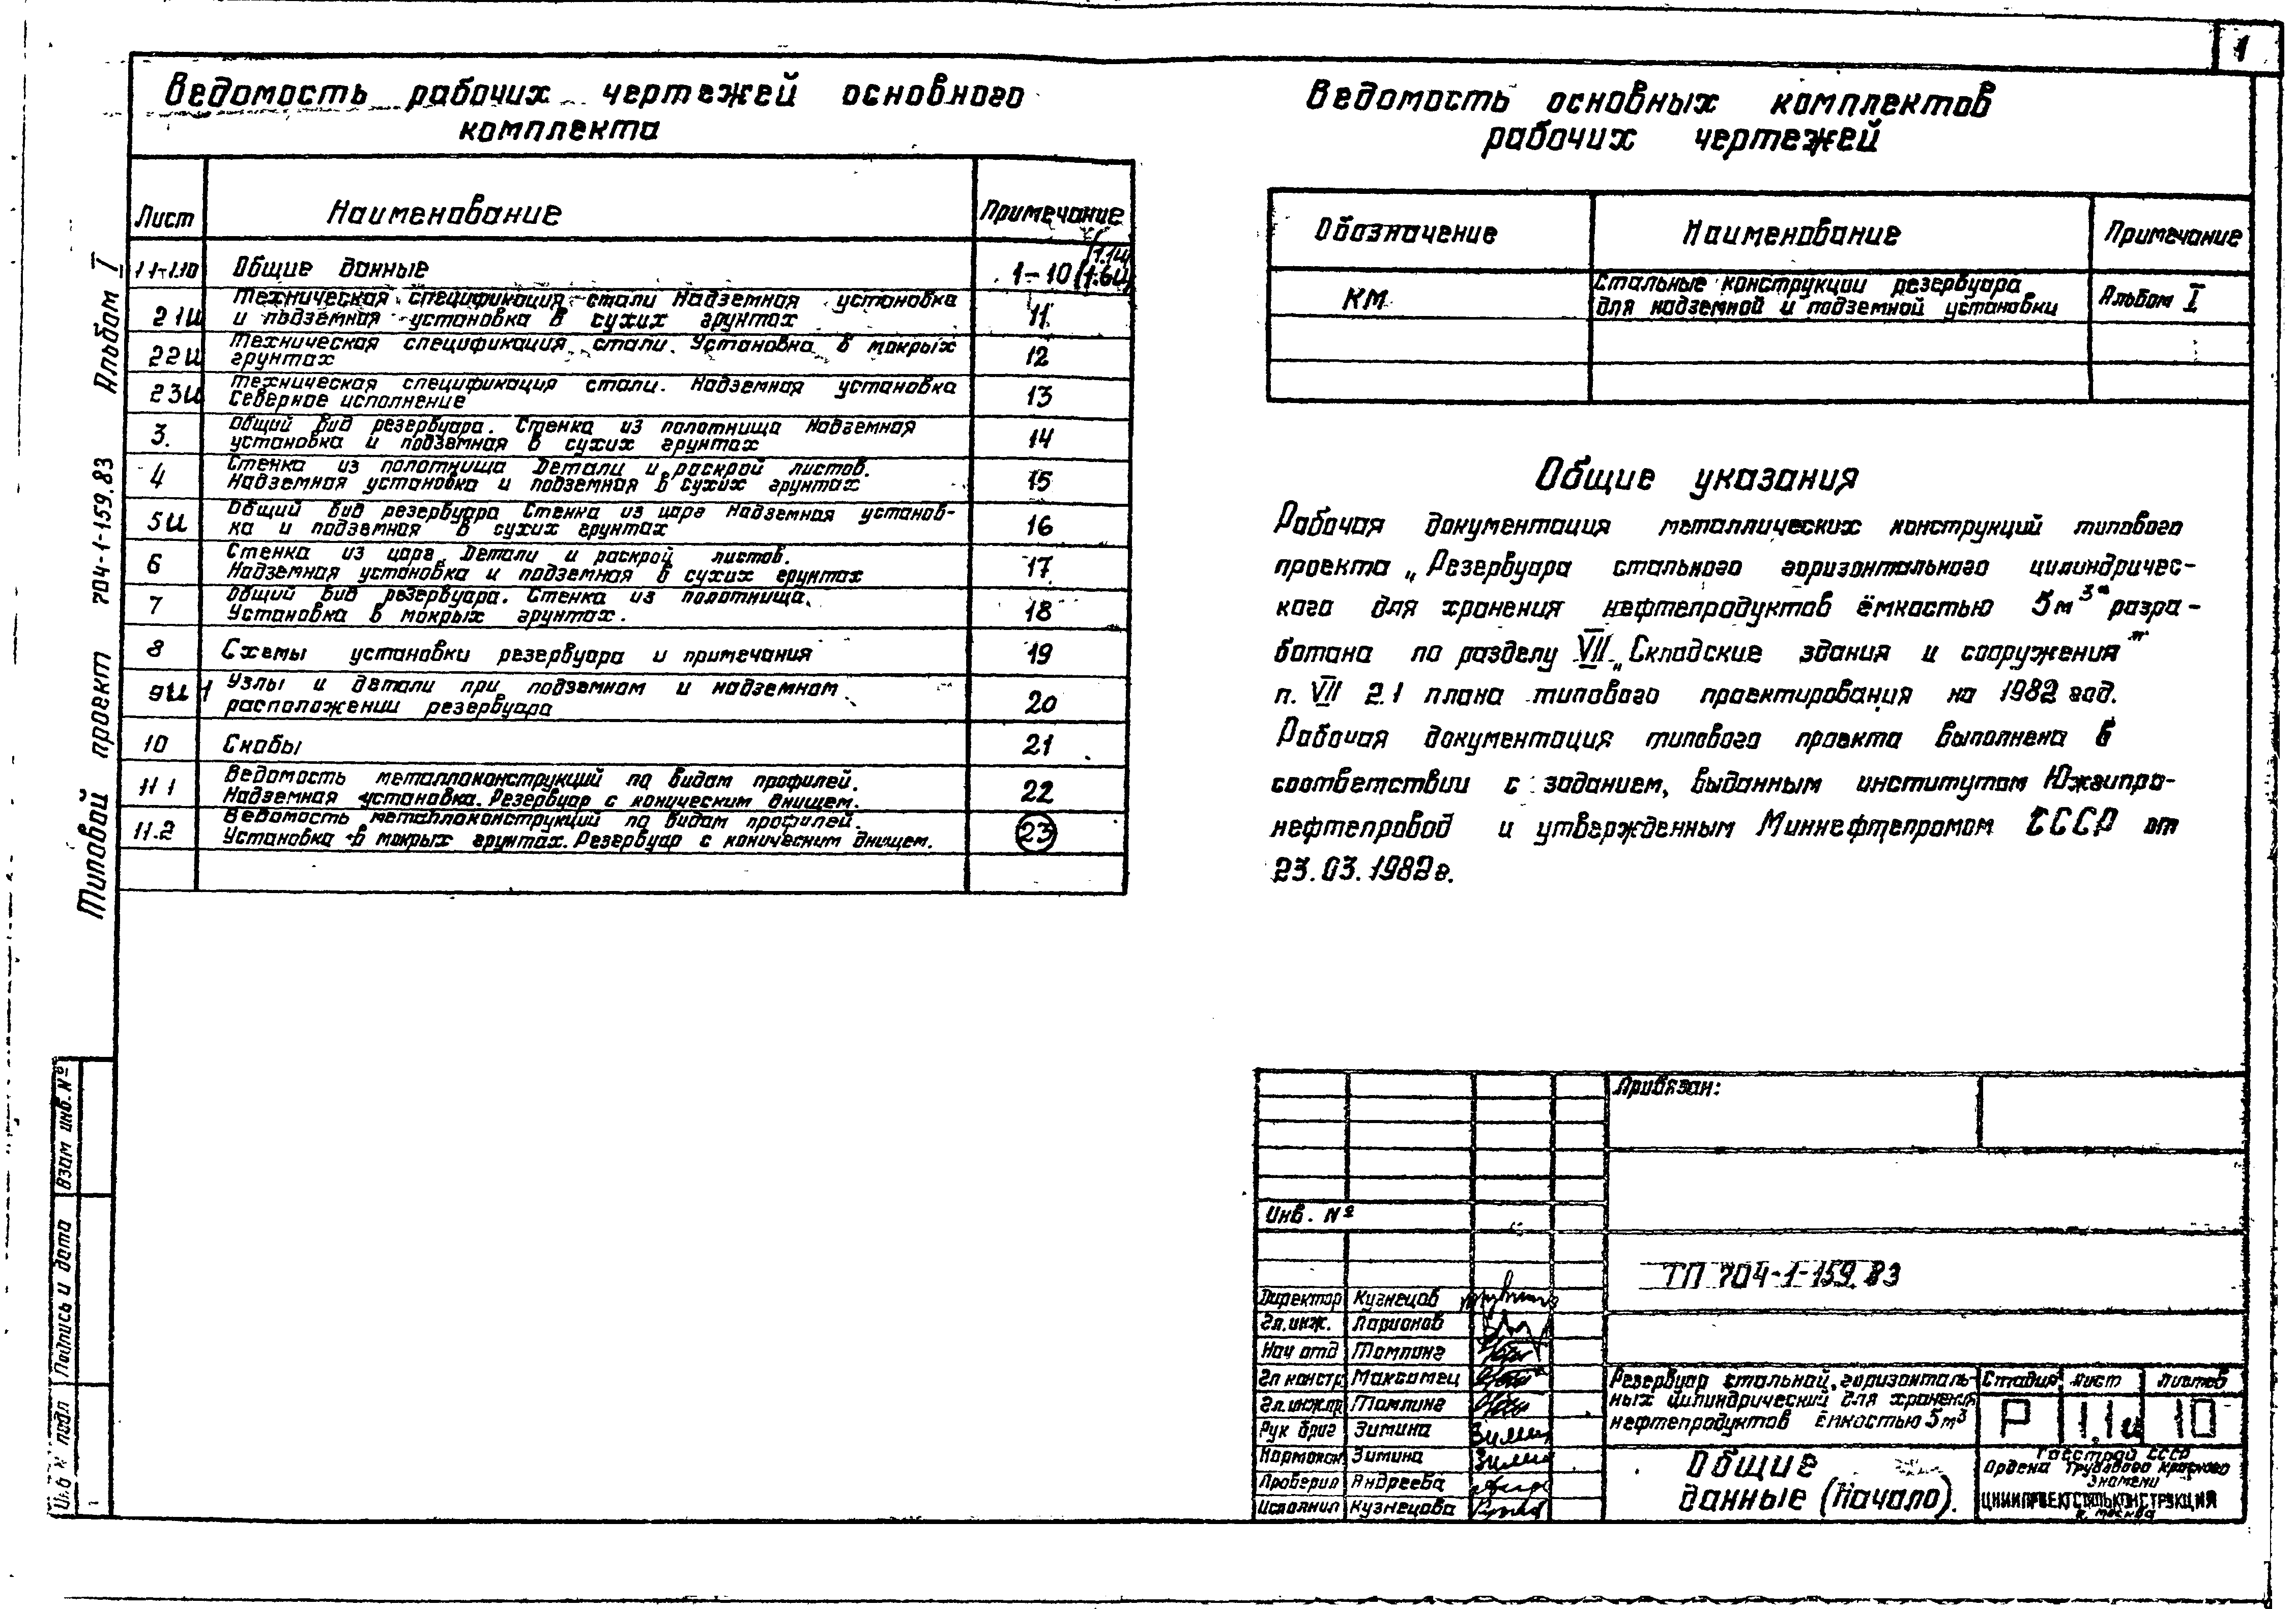 1
Ведомость рабочих чертежей основного
комплекта
Лист Наименование Примечание
1.1-1.10 Общие данные 1-10
2.1И Техническая спецификация стали Надземная установка
и подземная установка в сухих грунтах 11
2.2И Техническая спецификация стали. Установка в мокрых
грунтах 12
2.3И Техническая спецификация стали. Надземная установка
Северное исполнение 13
3. Общий вид резервуара. Стенка из полотнища Надземная
установка и подземная в сухих грунтах 14
4 Стенка из полотнища Детали и раскрой листов.
Надземная установка и подземная в сухих грунтах 15
5И Общий вид резервуара Стенка из царг Надземная установ-
ка и подземная в сухих грунтах 16
6 Стенка из царг. Детали и раскрой листов.
Надземная установка и подземная в сухих грунтах 17
7 Общий вид резервуара. Стенка из полотнища.
Установка в мокрых грунтах. 18
8 Схемы установки резервуара и примечания 19
9И1 Узлы и детали при подземном и надземном
расположении резервуара 20
10 Скобы 21
11 1 Ведомость металлоконструкций по видам профилей.
Надземная установка. Резервуар с коническим днищем. 22
11.2 Ведомость металлоконструкций по видам профилей.
Установка в мокрых грунтах. Резервуар с коническим днищем. 23
Типовой проект 704-1-159.83 Альбом I
Взам инв. №
Подпись и дата
Инв № подл
Ведомость основных комплектов
рабочих чертежей
Обозначение Наименование Примечание
КМ Стальные конструкции резервуара
для надземной и подземной установки Альбом I
Общие указания
Рабочая документация металлических конструкций типового
проекта „Резервуара стального горизонтального цилиндричес-
кого для хранения нефтепродуктов ёмкостью 5м³" разра-
ботана по разделу VII „Складские здания и сооружения"
п. VII 2.1 плана типового проектирования на 1982 год.
Рабочая документация типового проекта выполнена в
соответствии с заданием, выданным институтом Южгипро-
нефтепровод и утвержденным Миннефтепромом СССР от
23.03.1982г.
Привязан:
Инв. №
ТП 704-1-159.83
Директор Кузнецов
Гл.инж. Ларионов
Нач отд Томлинг
Гл констр Максимец
Гл.инж.пр Томлинг
Рук бриг Зимина
Нормокон Зимина
Проверил Андреева
Исполнил Кузнецова
Резервуар стальной, горизонталь-
ных цилиндрический для хранения
нефтепродуктов ёмкостью 5м³
Стадия Лист Листов
Р 1.1и 10
Общие
данные (Начало).
Госстрой СССР
Ордена Трудового Красного
Знамени
ЦНИИПРОЕКТСТАЛЬКОНСТРУКЦИЯ
г. Москва